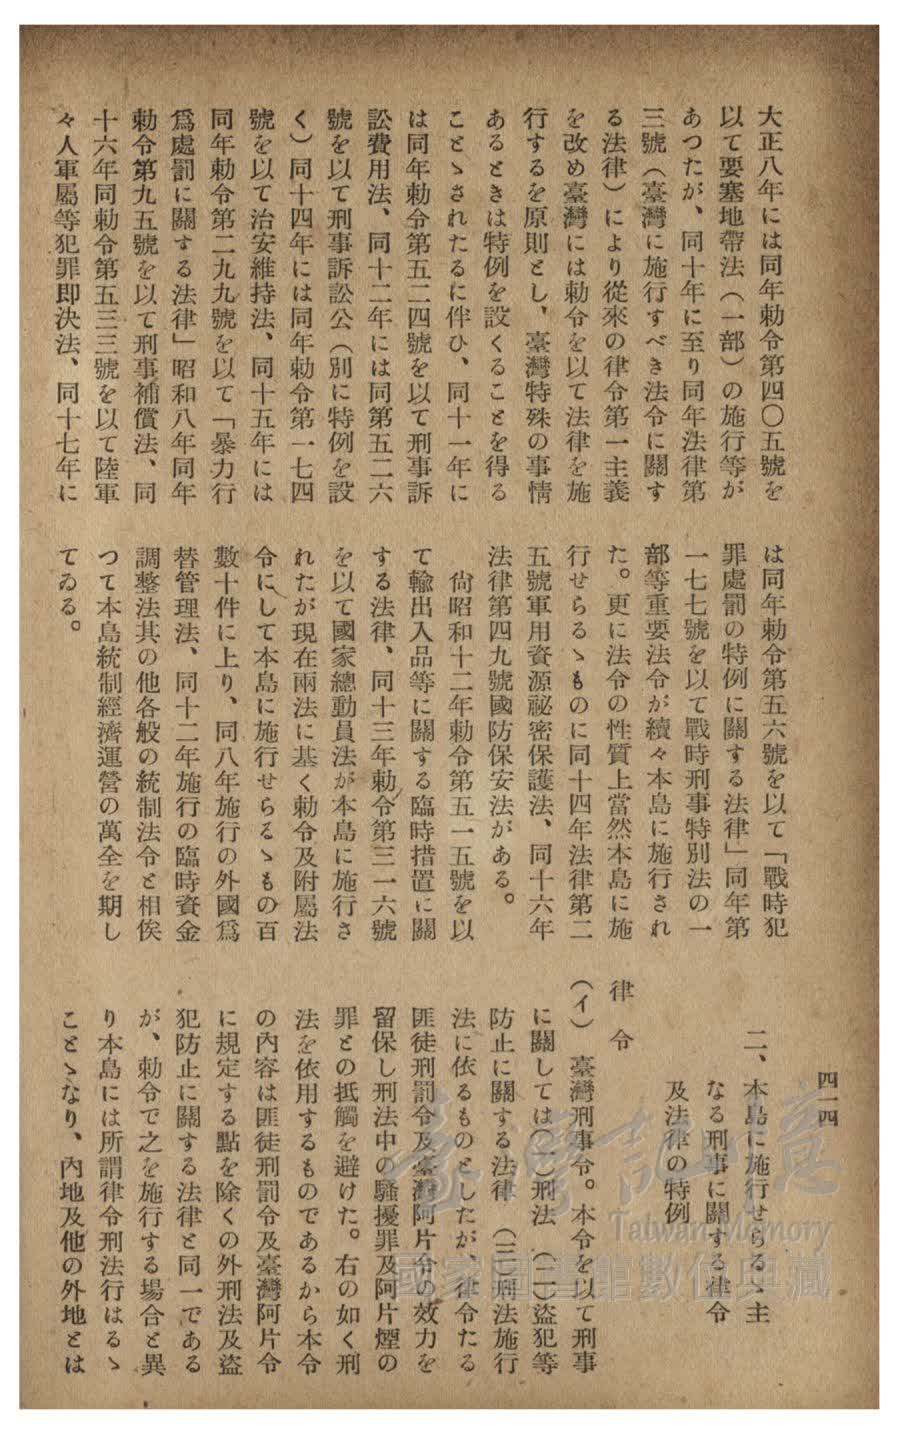 四一四
大正八年には同年勅令第四〇五號を
以て要塞地帶法（一部）の施行等が
あつたが、同十年に至り同年法律第
三號（臺灣に施行すべき法令に關す
る法律）により從來の律令第一主義
を改め臺灣には勅令を以て法律を施
行するを原則とし、臺灣特殊の事情
あるときは特例を設くることを得る
ことゝされたるに伴ひ、同十一年に
は同年勅令第五二四號を以て刑事訴
訟費用法、同十二年には同第五二六
號を以て刑事訴訟公（別に特例を設
く）同十四年には同年勅令第一七四
號を以て治安維持法、同十五年には
同年勅令第二九九號を以て「暴力行
爲處罰に關する法律」昭和八年同年
勅令第九五號を以て刑事補償法、同
十六年同勅令第五三三號を以て陸軍
々人軍屬等犯罪即決法、同十七年に
は同年勅令第五六號を以て「戰時犯
罪處罰の特例に關する法律」同年第
一七七號を以て戰時刑事特別法の一
部等重要法令が續々本島に施行され
た。更に法令の性質上當然本島に施
行せらるゝものに同十四年法律第二
五號軍用資源祕密保護法、同十六年
法律第四九號國防保安法がある。
尙昭和十二年勅令第五一五號を以
て輸出入品等に關する臨時措置に關
する法律、同十三年勅令第三一六號
を以て國家總動員法が本島に施行さ
れたが現在兩法に基く勅令及附屬法
令にして本島に施行せらるゝもの百
數十件に上り、同八年施行の外國爲
替管理法、同十二年施行の臨時資金
調整法其の他各般の統制法令と相俟
つて本島統制經濟運營の萬全を期し
てゐる。
二、本島に施行せらるゝ主
なる刑事に關する律令
及法律の特例
律令
（イ）臺灣刑事令。本令を以て刑事
に關しては（一）刑法（二）盜犯等
防止に關する法律（三）刑法施行
法に依るものとしたが、律令たる
匪徒刑罰令及臺灣阿片令の效力を
留保し刑法中の騷擾罪及阿片煙の
罪との抵觸を避けた。右の如く刑
法を依用するものであるから本令
の內容は匪徒刑罰令及臺灣阿片令
に規定する點を除くの外刑法及盜
犯防止に關する法律と同一である
が、勅令で之を施行する場合と異
り本島には所謂律令刑法行はるゝ
ことゝなり、內地及他の外地とは
臺灣記憶
Taiwan Memory
國家圖書館數位典藏